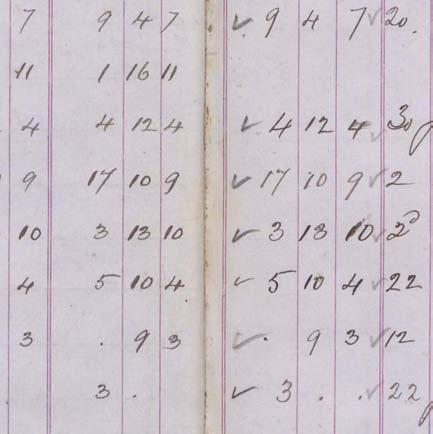 7 9 4 7 ✓ 9 4 7 ✓ 20.
11 1 16 11
4 4 12 4 ✓ 4 12 4 ✓ 30
9 17 10 9 ✓ 17 10 9 ✓ 2
10 3 13 10 ✓ 3 13 10 ✓ 2
4 5 10 4 ✓ 5 10 4 ✓ 22
3 . 9 3 ✓ . 9 3 ✓ 12
3 . ✓ 3 . . ✓ 22